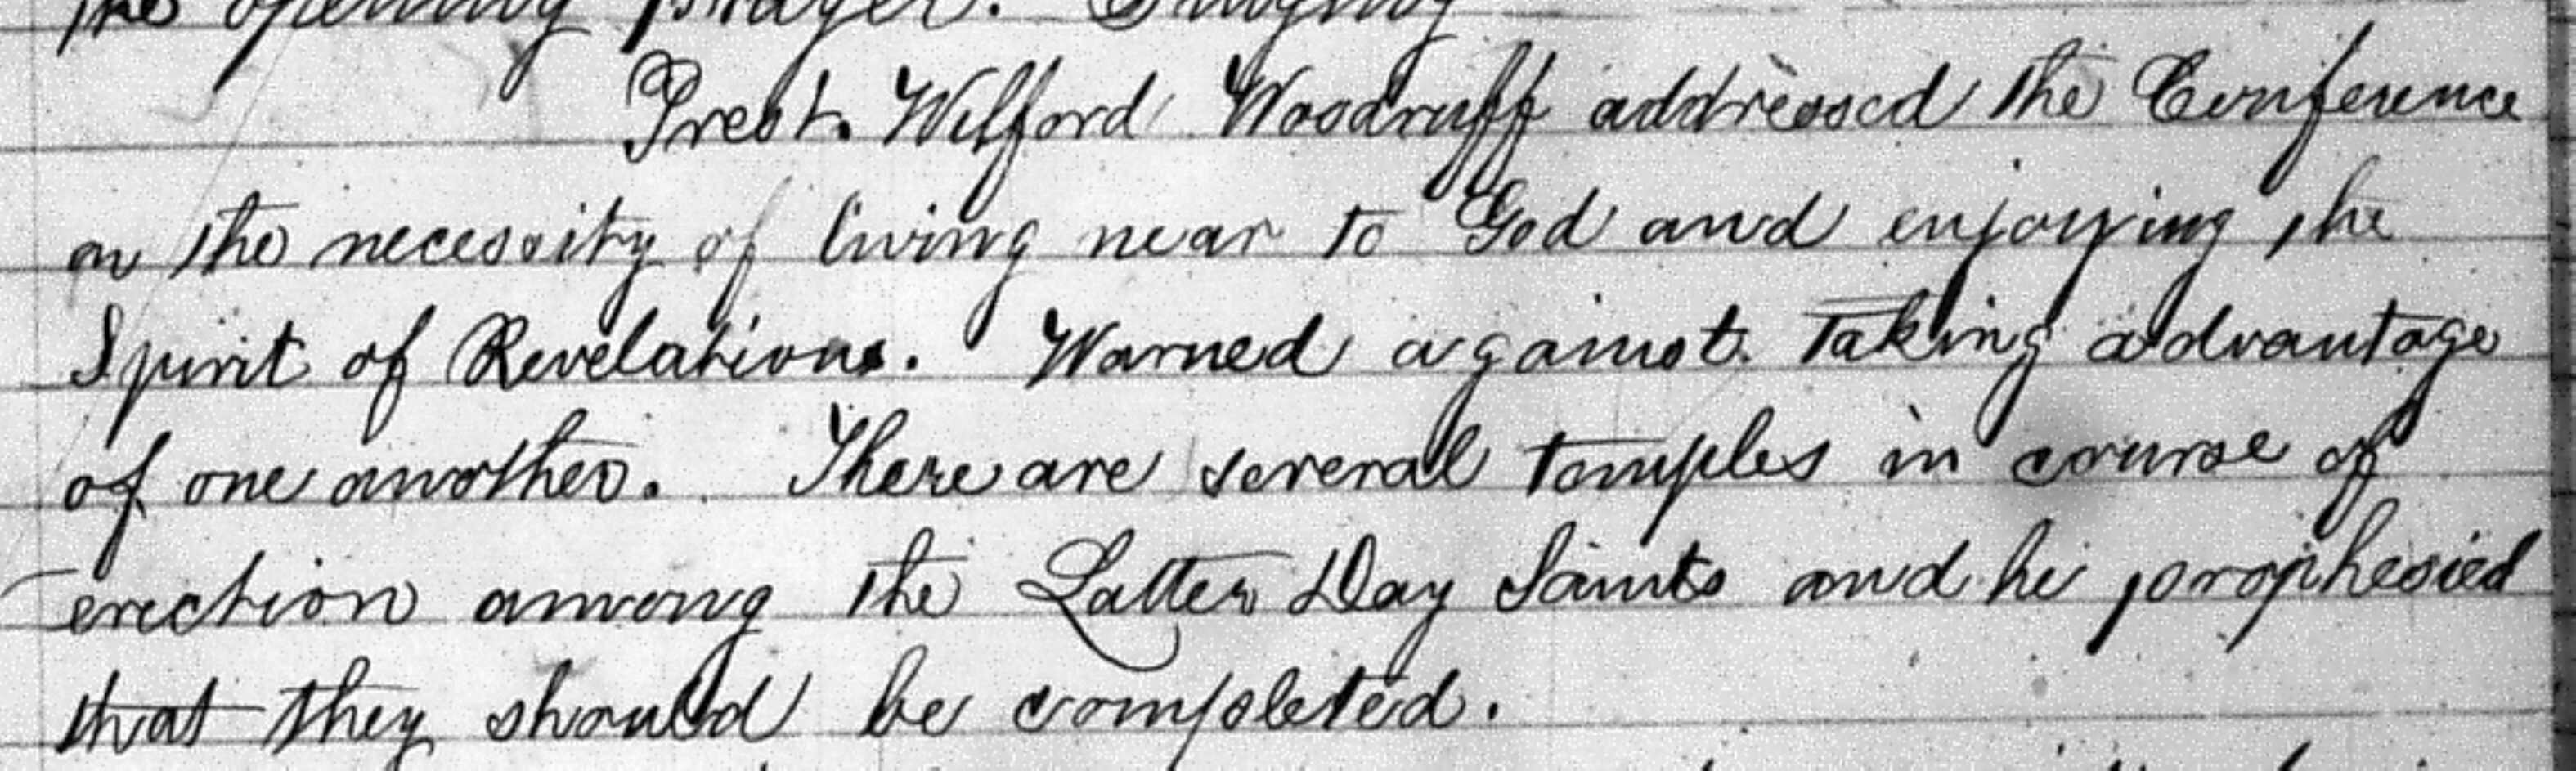 the opening prayer. Singing
Prest. Wilford Woodruff addressed the Conference
on the necessity of living near to God and enjoying the
Spirit of Revelations. Warned against taking advantage
of one another. There are several temples in course of
erection among the Latter Day Saints and he prophesied
that they should be completed.